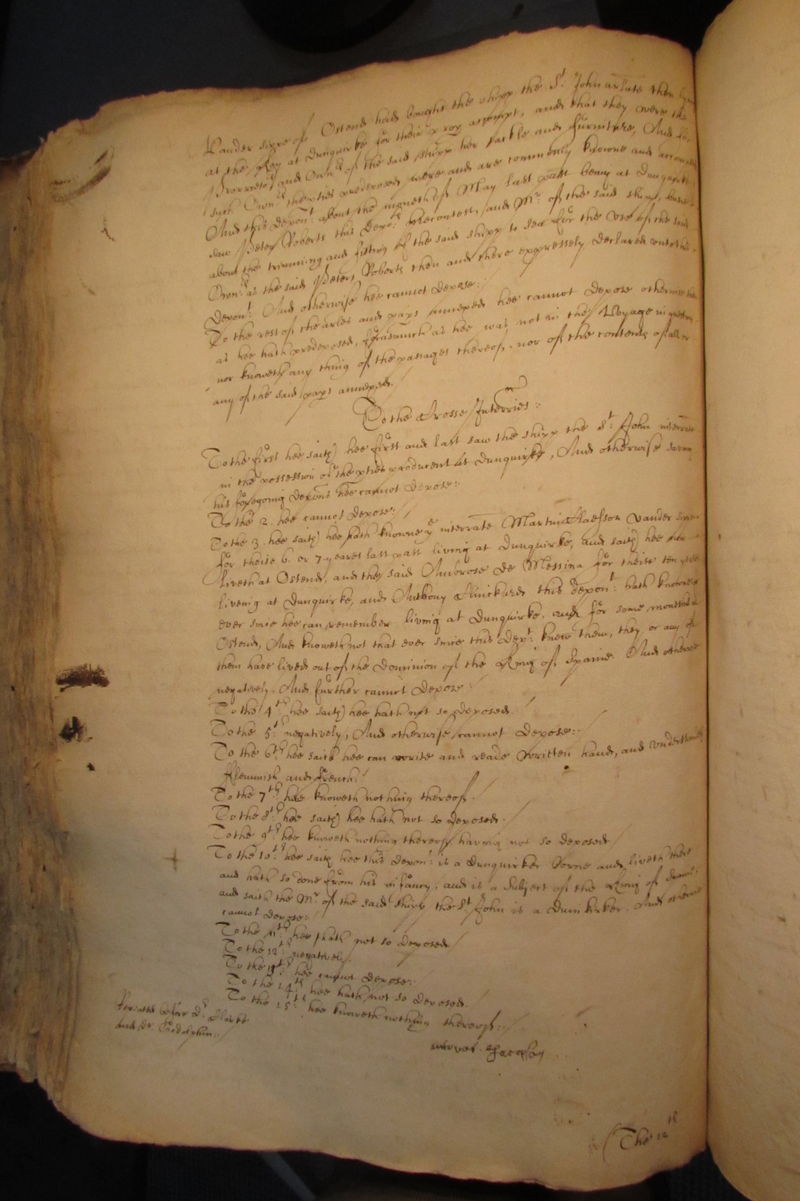 Vander sype of Ostend had bought the shipp the St. John arlate then
at the Key at Dunquirke for their proper accompt, and that they were the
Proprietors and Own:rs of the said shipp her tackle and furniture, And for
such Own:rs the parties predeposed were and are commonly knowne and accounted
And this Depon:t about the moneth of May last past being at Dunquirke
saw Peter Roberts this Depon:ts and M:r of the said shipp
about the trimming and fitting of the said shipp to sea for the Use of the said
Own:rs as the said Peter Roberts then and there expressely declared unto this
Depon:t. And otherwise hee cannot depose./
To the rest of the arles and papr annexed hee cannot depose otherwise then
as hee hath predeposed, forasmuch as hee was not in the Voyage in question
nor knoweth any thing of the passages thereof, nor of the contents of all or
any of the said papr annexed./
To the Crosse Interries:
To the first hee saith hee first and last saw the shipp the St. John interrate
in the possession of the ptiet producent at Dunquirke, And otherwise saving
his foregoing depons hee cannot Depose:
To the 2. hee cannot depose:/
To the 3. hee saith hee hath knowne ye interrate Martin Claesson Vander
for theise 6 or 7 yeares last past living at Dunquirke, and saith hee
liveth at Ostend, and the said Ambrose De Messina for theise ten
liveing at Dunquirke, and Anthony this depon:t hath knowne
ever since hee can remember living at Dunquirke, and for some moneths
Ostend, And knoweth not that ever since this Dep:t knew them, they or any of
them have lived out of the Dominion of the King of Spaine And otherwise
negatively. And further cannot depose
To the 4:th hee saith hee hath not so deposed./
To the 5:t negatively, And otherwise cannot depose:/
To the 6:th hee saith hee can write and reade written hand, and understands
fflemmish and ffrench/
To the 7:th hee knoweth nothing thereof./
To the 8:t hee saith hee hath not so deposed./
To the 9:t hee knoweth nothing thereof having not so deposed/
To the 10:t hee saith hee this depon:t is a Dunquirker borne and liveth there
and hath so done from his infancy, and is a subject of the King of Spaine
and saith the M:r of the said shipp the St. John is a Dunkirker. And otherwise
cannot depose:/
To the 11:th hee hath not so deposed/
To the 12:t negatively/
To the 13:t hee cannot depose:
To the 14:th hee hath not so deposed./
To the 15:t hee knoweth nothing thereof:/
Repeated before D:r Clarke
and Dr. Godolphin./
The 12th